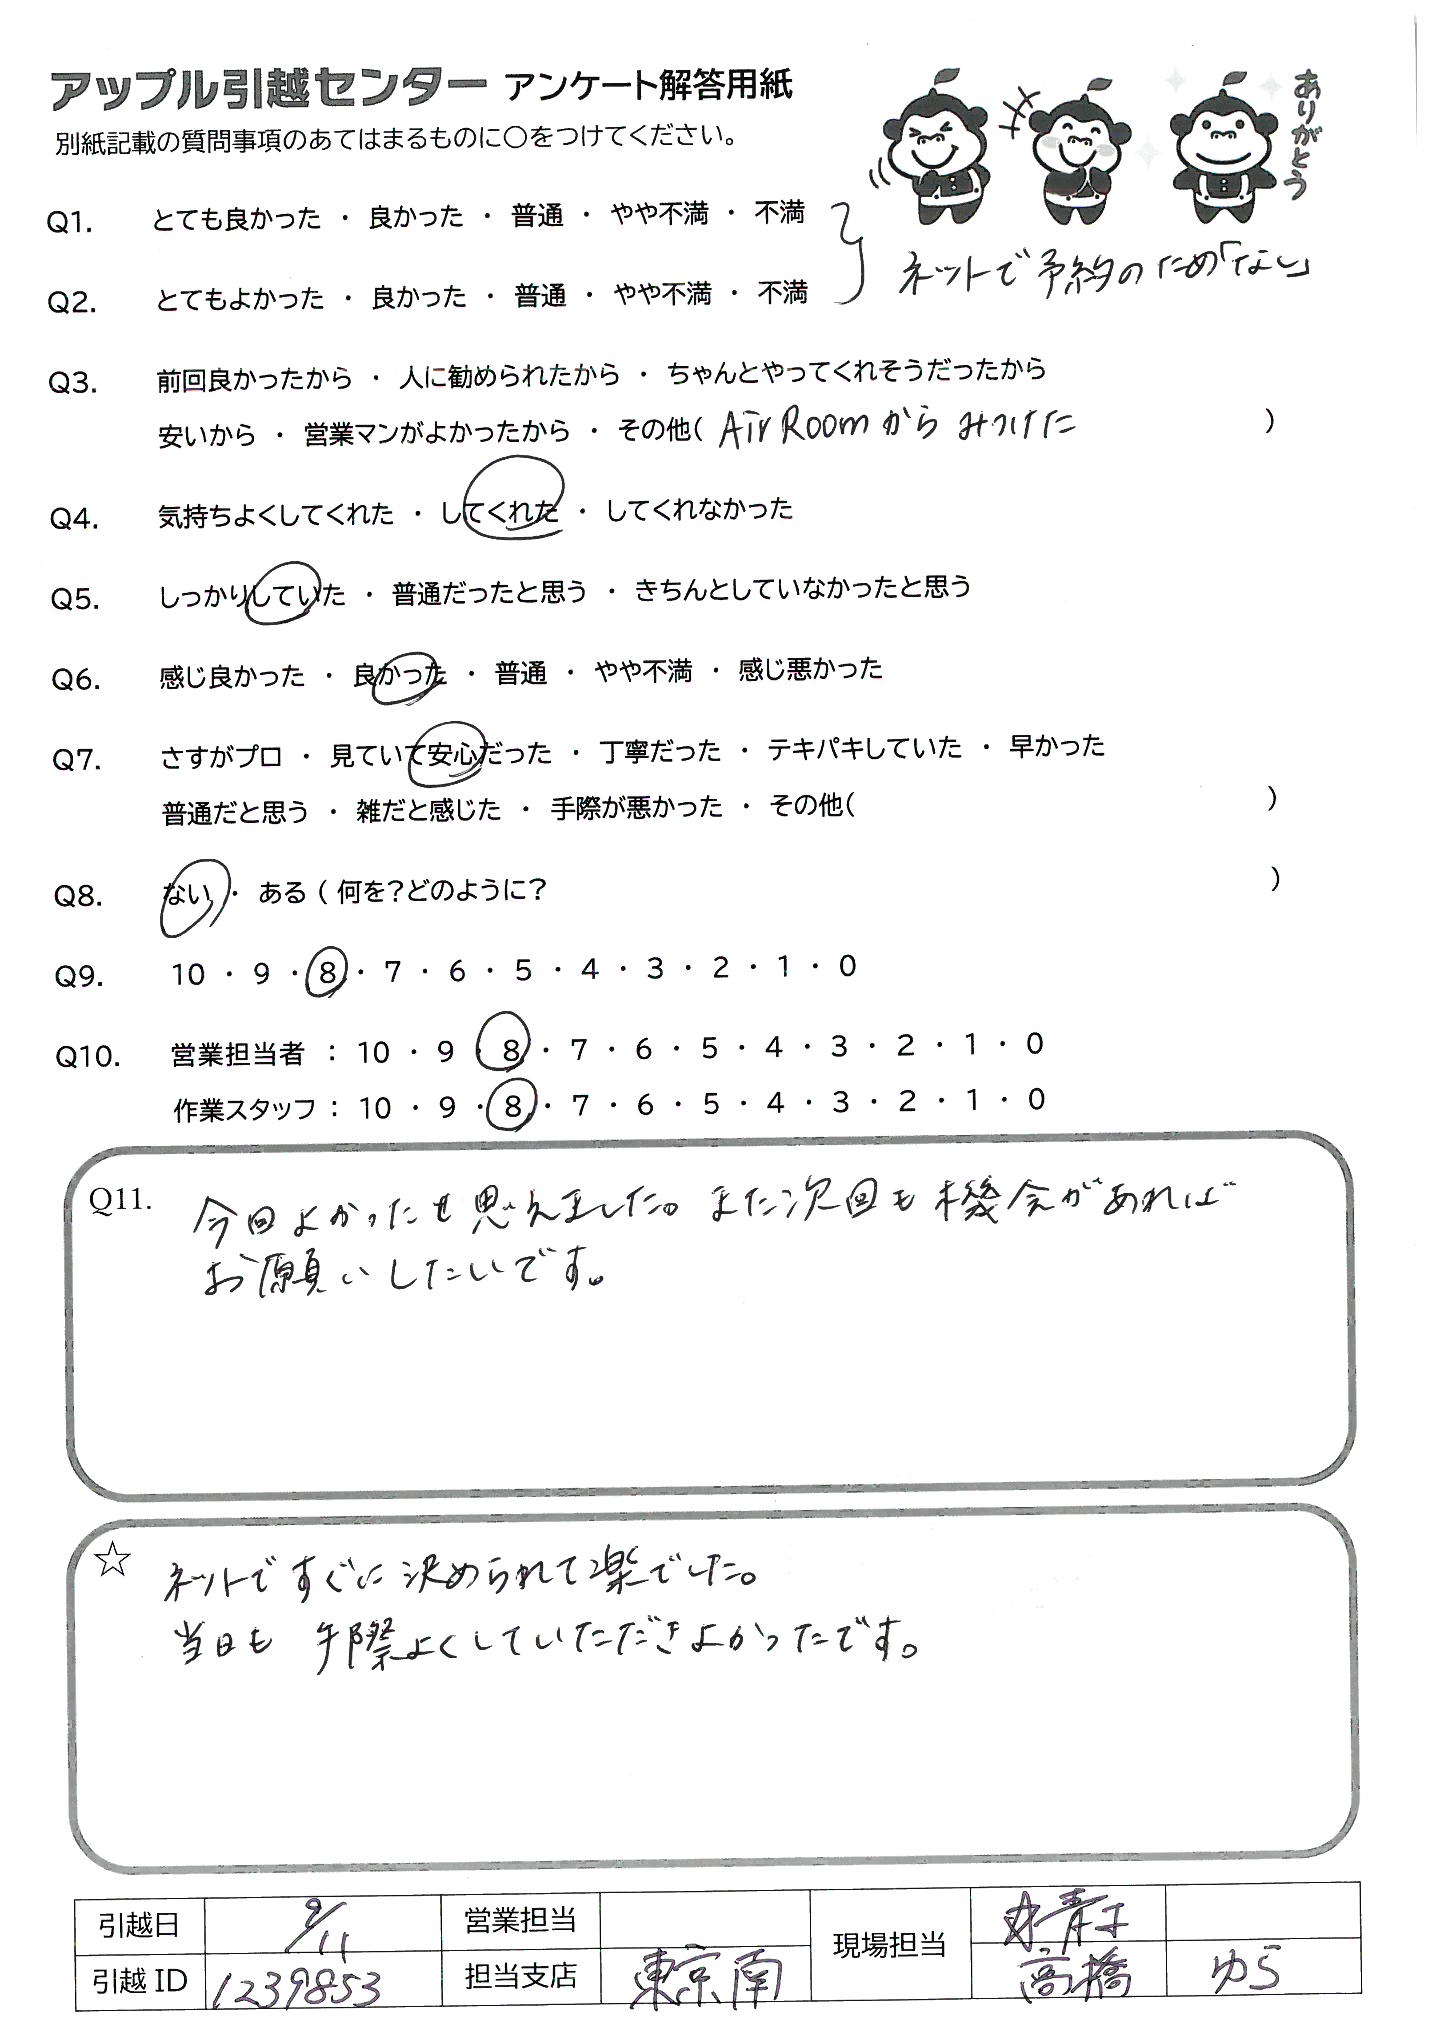 アップル引越センター アンケート解答用紙
ありがとう
別紙記載の質問事項のあてはまるものに〇をつけてください。
Q1. とても良かった ・ 良かった ・ 普通 ・ やや不満 ・ 不満
ネットで予約のため「なし」
Q2. とてもよかった ・ 良かった ・ 普通 ・ やや不満 ・ 不満
Q3. 前回良かったから ・ 人に勧められたから ・ ちゃんとやってくれそうだったから
安いから ・ 営業マンがよかったから ・ その他( Air Roomからみつけた )
Q4. 気持ちよくしてくれた ・ してくれた ・ してくれなかった
Q5. しっかりしていた ・ 普通だったと思う ・ きちんとしていなかったと思う
Q6. 感じ良かった ・ 良かった ・ 普通 ・ やや不満 ・ 感じ悪かった
Q7. さすがプロ ・ 見ていて安心だった ・ 丁寧だった ・ テキパキしていた ・ 早かった
普通だと思う ・ 雑だと感じた ・ 手際が悪かった ・ その他( )
Q8. ない ・ ある ( 何を?どのように? )
Q9. 10 ・ 9 ・ 8 ・ 7 ・ 6 ・ 5 ・ 4 ・ 3 ・ 2 ・ 1 ・ 0
Q10. 営業担当者 : 10 ・ 9 ・ 8 ・ 7 ・ 6 ・ 5 ・ 4 ・ 3 ・ 2 ・ 1 ・ 0
作業スタッフ : 10 ・ 9 ・ 8 ・ 7 ・ 6 ・ 5 ・ 4 ・ 3 ・ 2 ・ 1 ・ 0
Q11. 今回よかったも思えました。また次回も機会があれば
お願いしたいです。
☆ ネットですぐに決められて楽でした。
当日も 手際よくしていただきよかったです。
引越日 9/11 営業担当 現場担当
引越ID 1239853 担当支店 東京南 高橋 ゆら